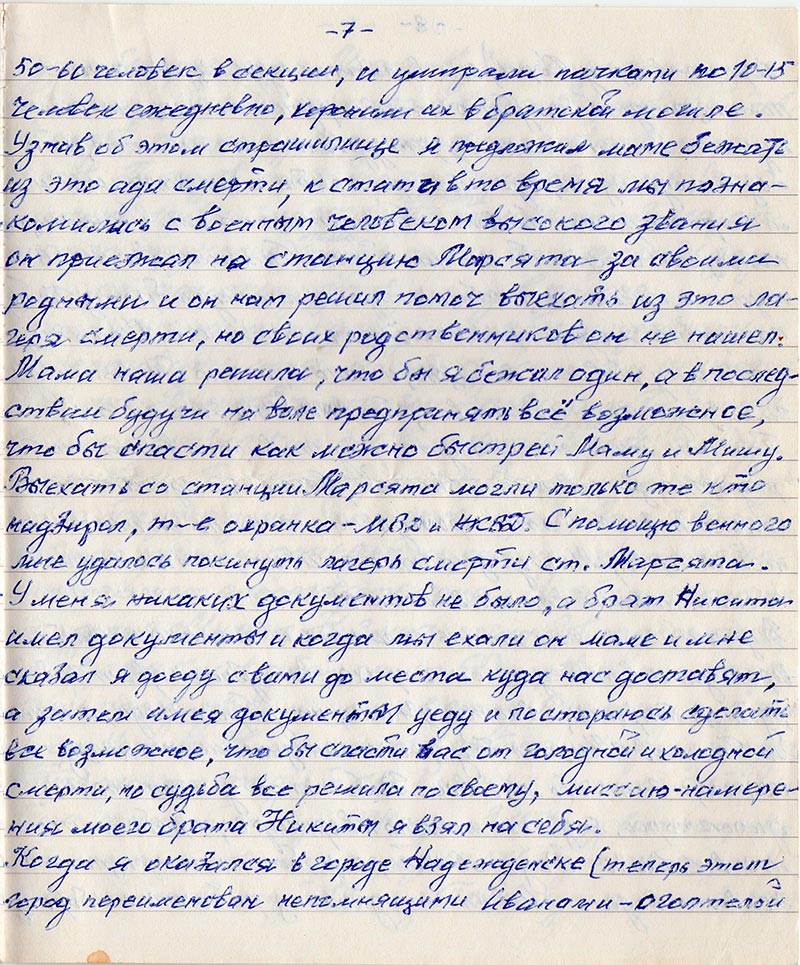 -7-
50-60 человек в секции, и умирали пачками по 10-15
человек ежедневно, хоронили их в братской могиле.
Узнав об этом страшилище я предложил маме бежать
из это ада смерти, к стати в то время мы позна-
комились с военным человеком высокого звания
он приезжал на станцию Марсята за своими
родными и он нам решил помоч выехать из это ла-
геря смерти, но своих родственников он не нашел.
Мама наша решила, что бы я бежал один, а в послед-
ствии будучи на воле предпринять всё возможное,
что бы спасти как можно быстрей Маму и Мишу.
Выехать со станции Марсята могли только те кто
надзирал, т-е охранка - МВД и НКВД. С помощю военного
мне удалось покинуть лагерь смерти ст. Марсята.
У меня никаких документов не было, а брат Никита
имел документы и когда мы ехали он маме и мне
сказал я доеду с вами до места куда нас доставят,
а затем имея документы уеду и постораюсь сделать
все возможное, что бы спасти вас от голодной и холодной
смерти, но судьба все решила по своему, миссию-намере-
ния моего брата Никиты я взял на себя.
Когда я оказался в городе Надежденске (теперь этот
город переименован непомнящими Иванами - оголтелой